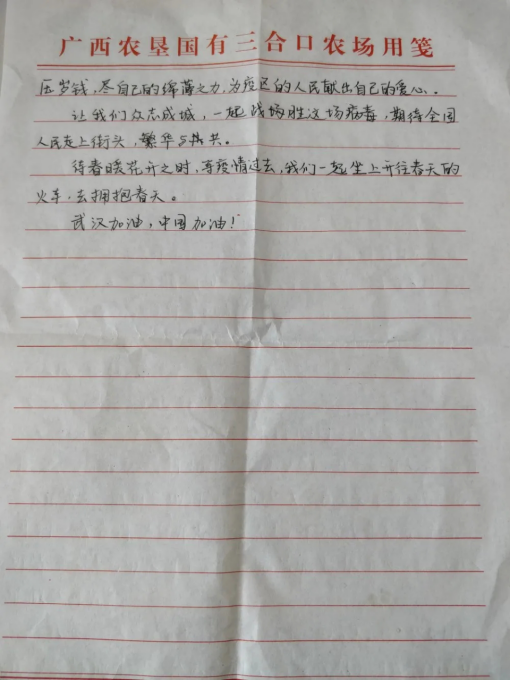 广西农垦国有三合口农场用笺
压岁钱,尽自己的绵薄之力,为疫区的人民献出自己的爱心。
让我们众志成城,一起战胜这场病毒,期待全国
人民走上街头,繁华与共。
待春暖花开之时,等疫情过去,我们一起坐上开往春天的
火车,去拥抱春天。
武汉加油,中国加油!